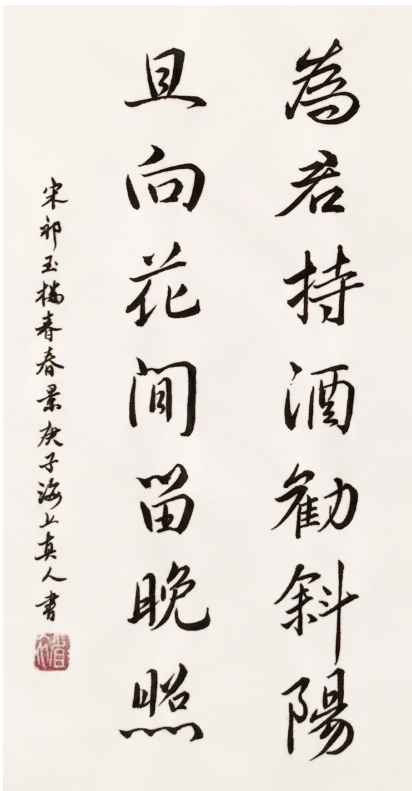 為君持酒勸斜陽
且向花間留晚照
宋祁玉樓春春景庚子海上真人書